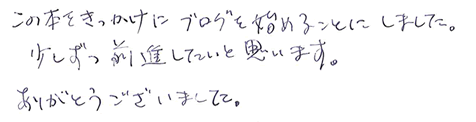 この本をきっかけに ブログを始めることに しました。
少しずつ 前進したいと思います。
ありがとうございました。